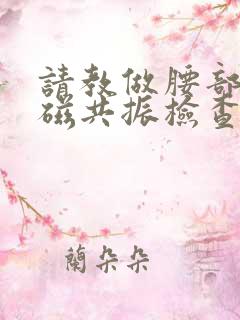 請教做腰部
磁共振檢查
蘭朵朵